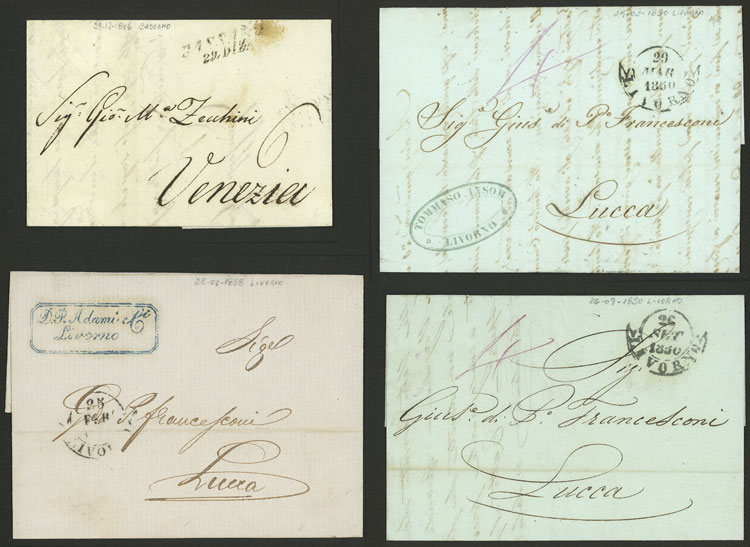 29.12.1846 BASSANO
BASSANO
29. DIZ.
Sig.r Gio. M.a Zecchini
6
Venezia
29-03-1850 LIVORNO
4
29
MAR
1850
LIVORNO
Sig.r Gius.e di P.o Francesconi
TOMMASO
LIVORNO
Lucca
25-02-1858 LIVORNO
D.P. Adami e C.i
Livorno
Sig.r
25
FEB
LIVORNO
G. P. Francesconi
Lucca
26-09-1850 LIVORNO
4
26
SET
1850
LIVORNO
Sig.
Gius.e di P.o Francesconi
Lucca